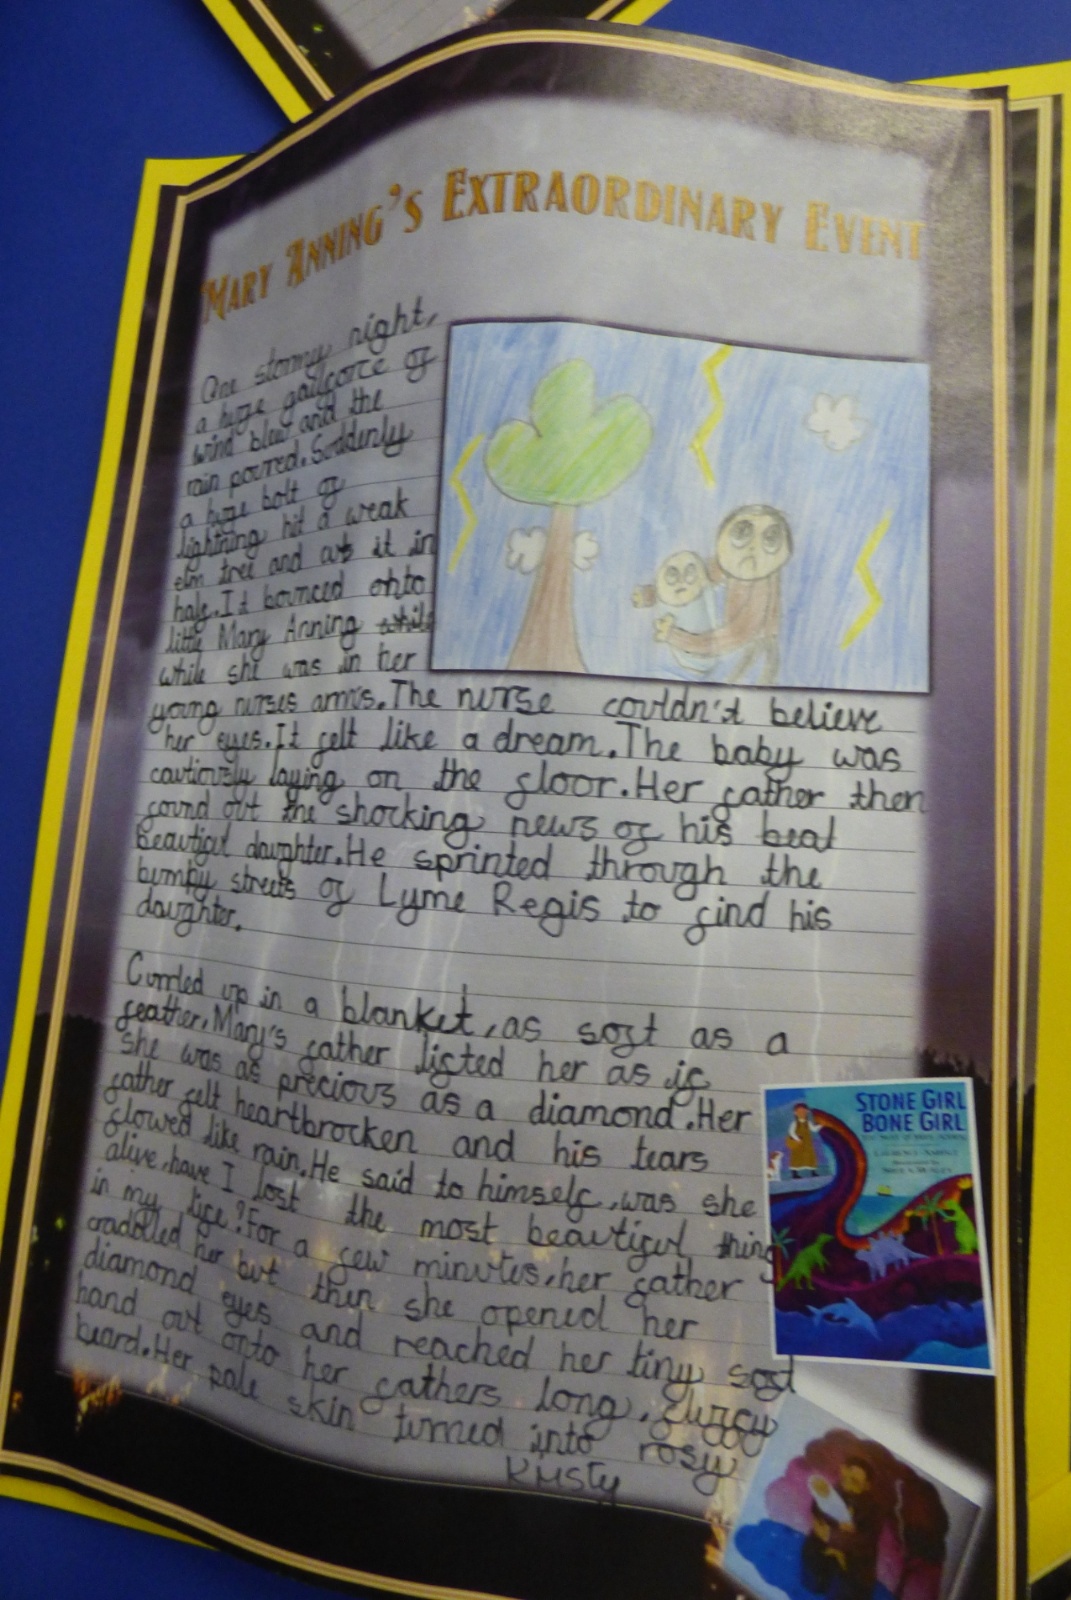 MARY ANNING'S EXTRAORDINARY EVENT
One stormy night,
a huge galeforce of
wind blew and the
rain poured. Suddenly
a huge bolt of
lightning hit a weak
elm tree and cut it in
half. It bounced onto
little Mary Anning while
while she was in her
young nurses arms. The nurse couldn't believe
her eyes. It felt like a dream. The baby was
cautiously laying on the floor. Her father then
found out the shocking news of his beat
beautiful daughter. He sprinted through the
bumpy streets of Lyme Regis to find his
daughter.
Curled up in a blanket, as soft as a
feather. Mary's father lifted her as if
she was as precious as a diamond. Her
father felt heartbrocken and his tears
flowed like rain. He said to himself, was she
alive, have I lost the most beautiful thing
in my life? For a few minutes, her father
craddled her but then she opened her
diamond eyes and reached her tiny soft
hand out onto her fathers long, fluffy
beard. Her pale skin turned into rosy
STONE GIRL
BONE GIRL